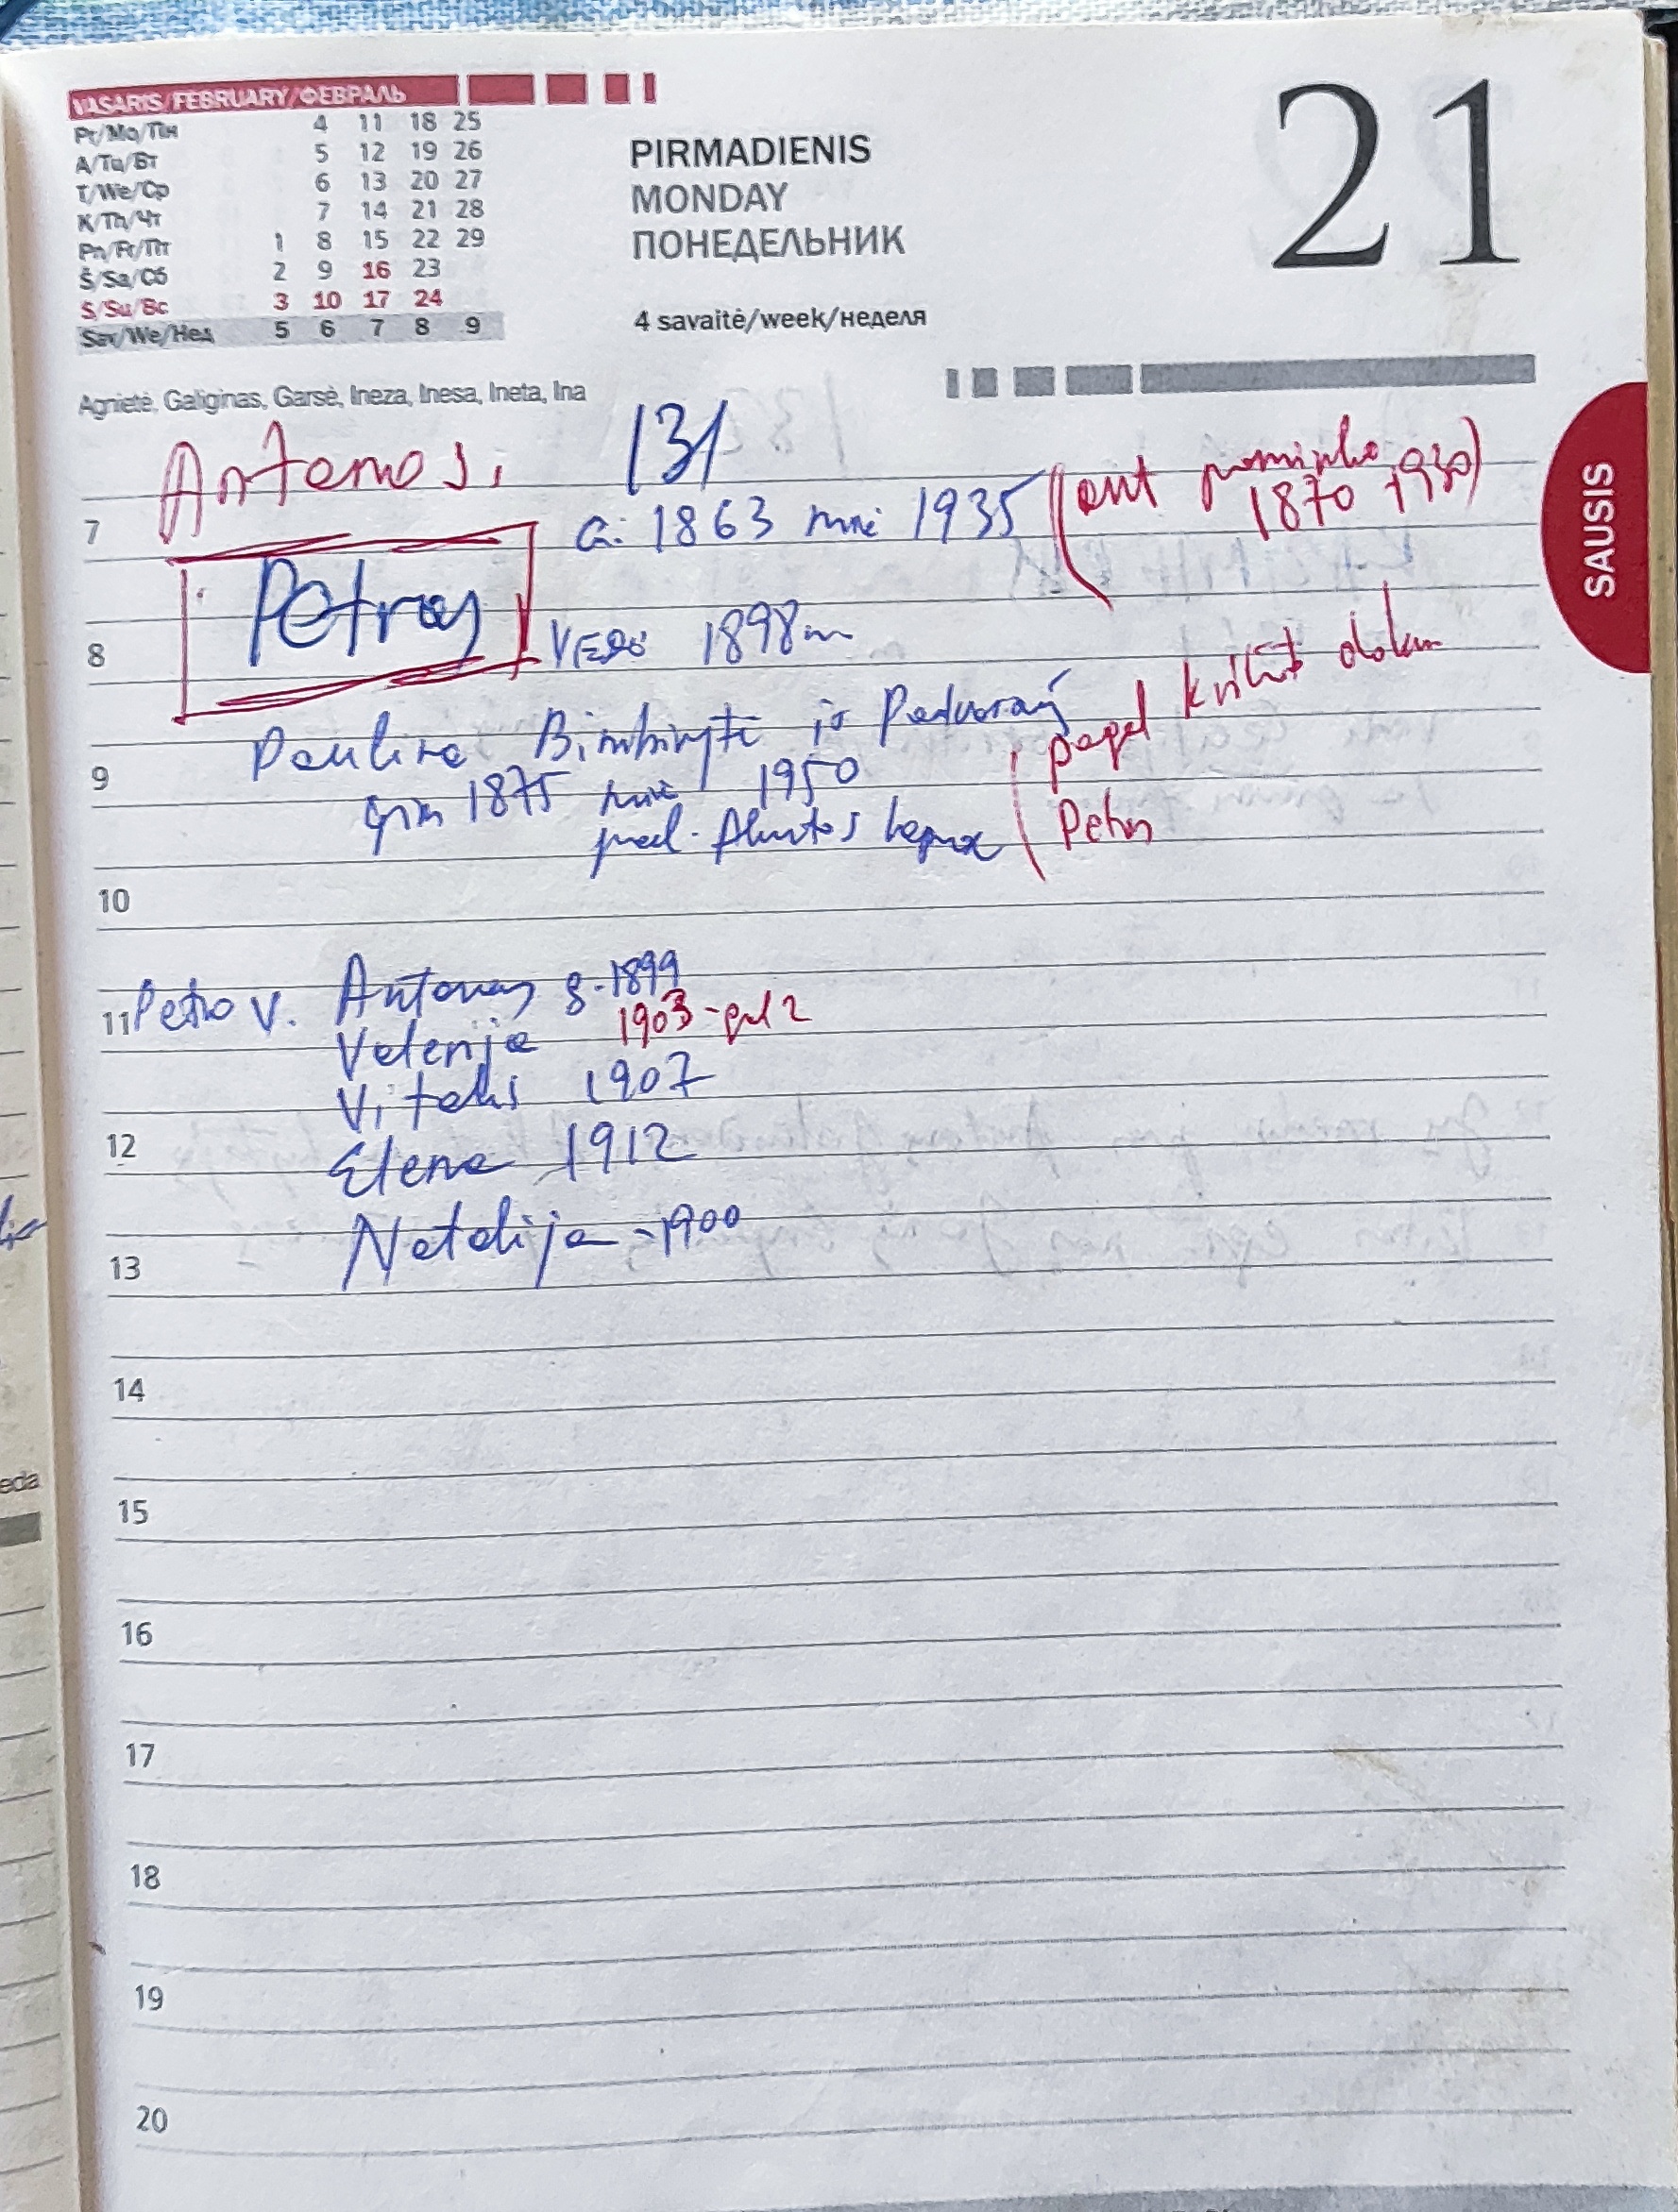 VASARIS/FEBRUARY/ФЕВРАЛЬ
Pr/Mo/Пн 4 11 18 25
A/Tu/Вт 5 12 19 26
T/We/Ср 6 13 20 27
K/Th/Чт 7 14 21 28
Pn/Fr/Пт 1 8 15 22 29
Š/Sa/Сб 2 9 16 23
S/Su/Вс 3 10 17 24
Sav/We/Нед 5 6 7 8 9
PIRMADIENIS
MONDAY
ПОНЕДЕЛЬНИК
4 savaitė/week/неделя
21
SAUSIS
Agnietė, Galiginas, Garsė, Ineza, Inesa, Ineta, Ina
Antanas 131
(ant paminklo
1870 1930)
7 G: 1863 mirė 1935
Petras
8 Vedė 1898 m
Paulina Bimbirytė iš Padvarių
9 gim 1875 mirė 1950
pagal dokum
Petras
10
11 Petro V. Antanas g. 1899
Valerija 1903
Vitalis 1907
12 Elena 1912
Natalija - 1900
13
14
15
16
17
18
19
20
eda